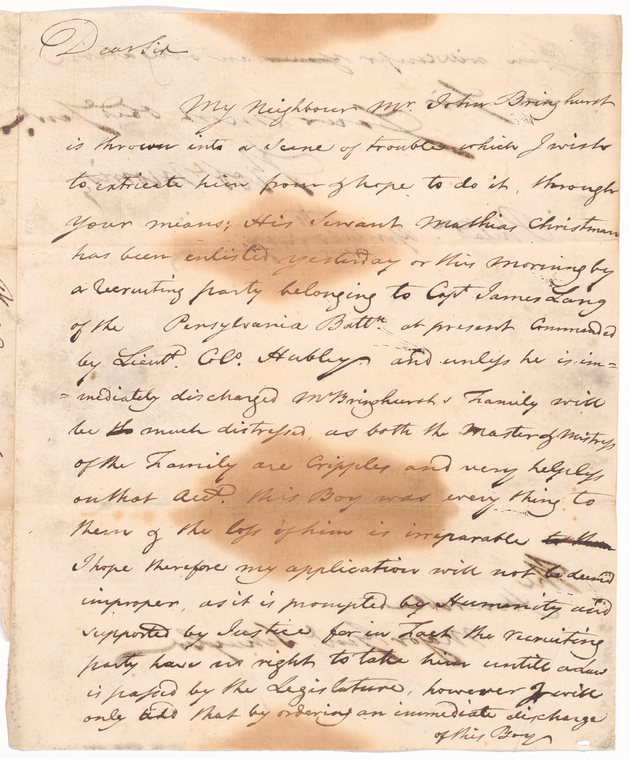 Dear Sir
My Neighbour Mr. John Bringhurst
is thrown into a Scene of trouble which I wish
to extricate him from & hope to do it, through
your means; His Servant Mathias Christman
has been enlisted yesterday or this morning by
a Recruiting party belonging to Capt James Lang
of the Pensylvania Battn. at present Commanded
by Lieutt. Colo. Hubley and unless he is im=
=mediately discharged Mr Bringhurst s Family will
be much distressed, as both the Master & Mistress
of the Family are Cripples and very helpless
on that Acct. this Boy was every thing to
them & the loss of him is irreparable to them
I hope therefore my application will not be deemed
improper, as it is prompted by Humanity and
supported by Justice for in Fact the recruiting
party have no right to take him untill a Law
is passed by the Legislature, however I will
only add that by ordering an immediate discharge
of this Boy